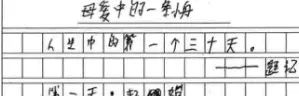 母爱中的一条悔
人生中的第一个三十天。
——题记
第一天：